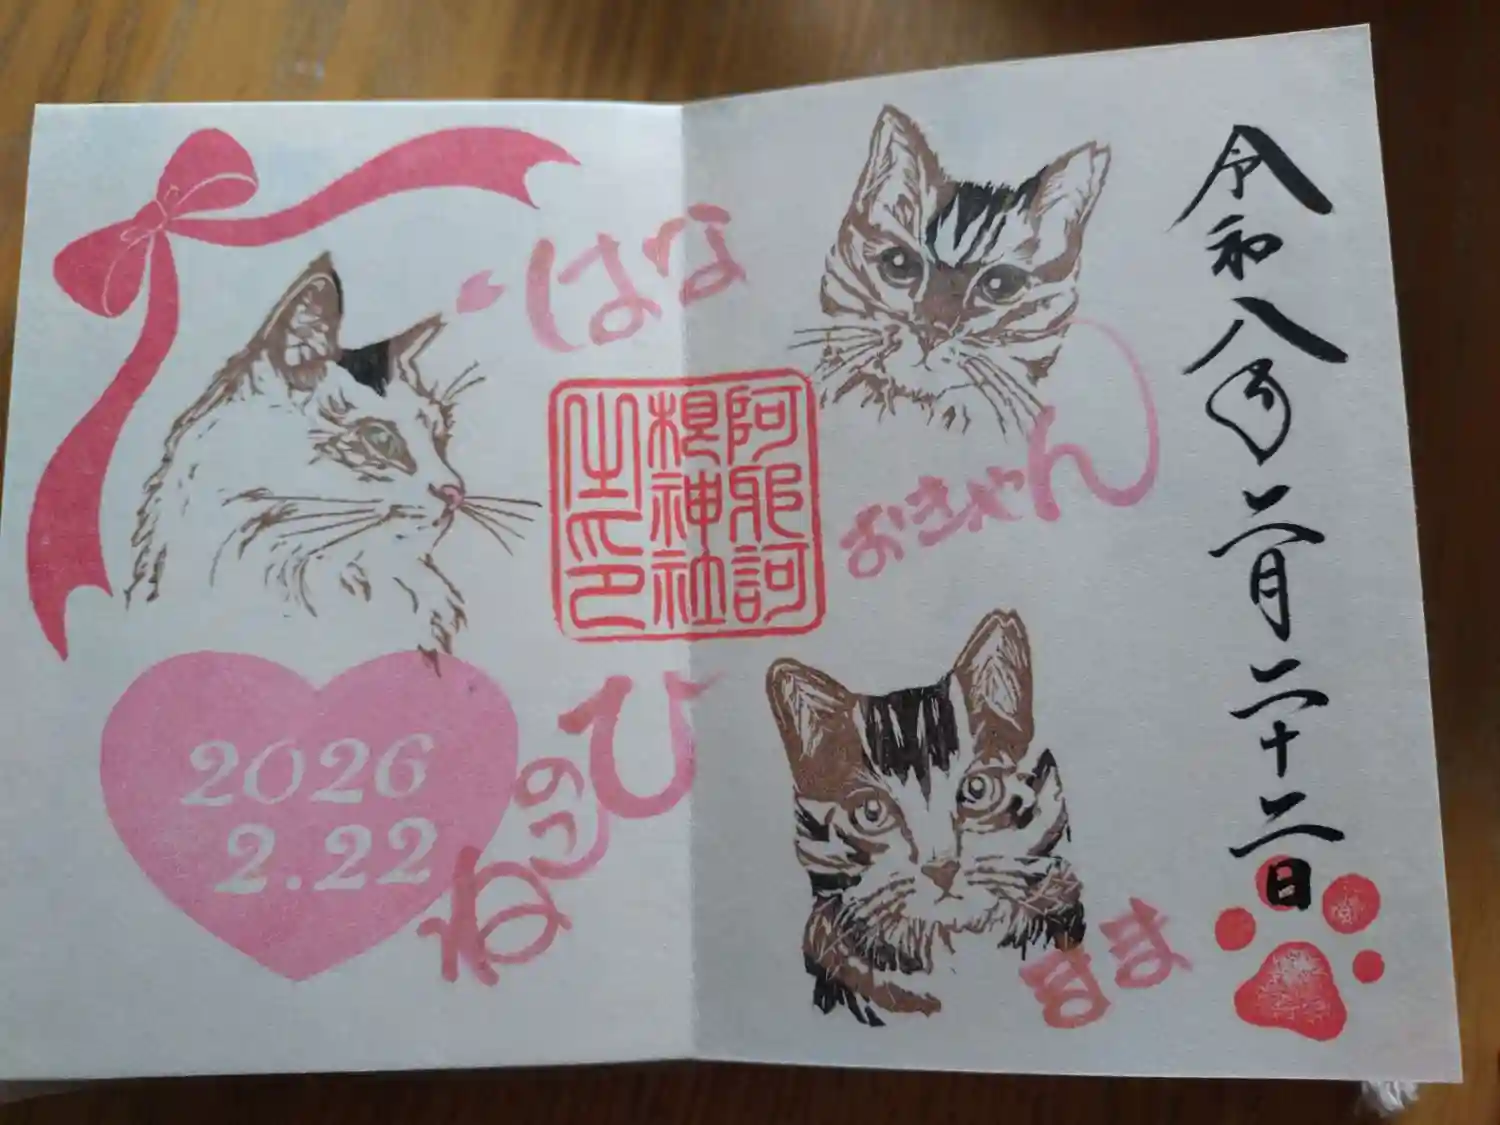 令和八年二月二十二日
はな
おきゃん
阿邪訶
根神社
之印
ねこのひ
すま
2026
2.22